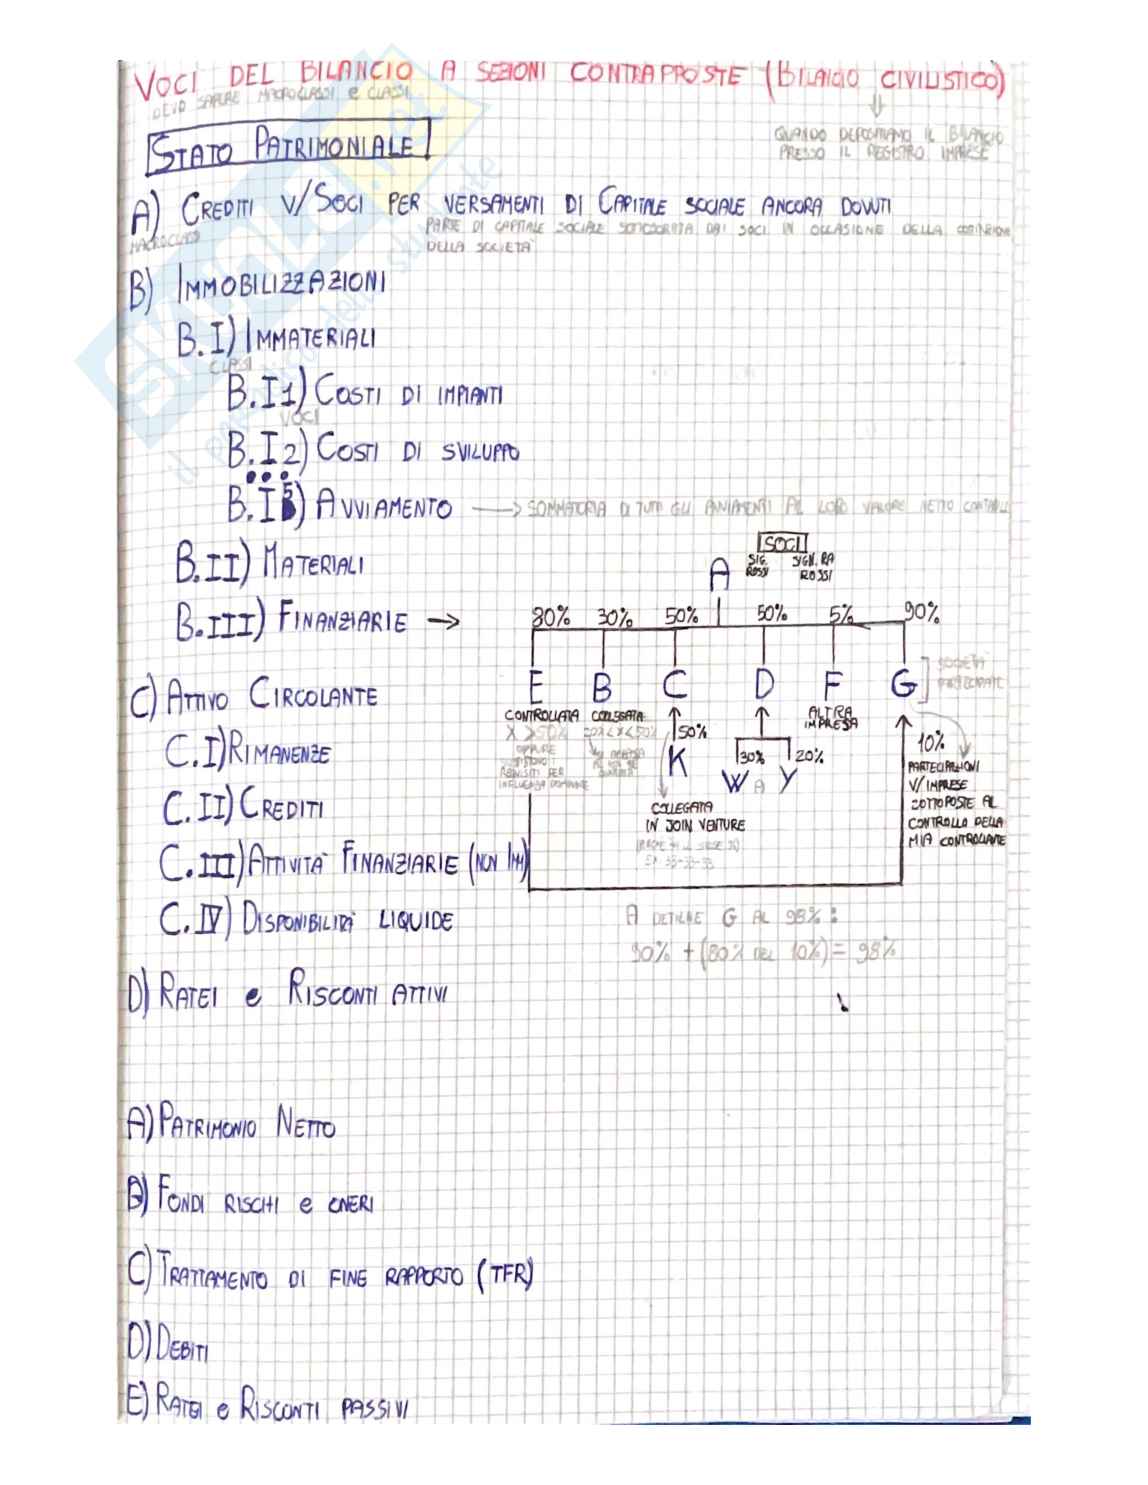 VOCI DEL BILANCIO A SEZIONI CONTRAPPOSTE (BILANCIO CIVILISTICO)
DEVO SAPERE MACROCLASSI e CLASSI
QUANDO DEPOSITIAMO IL BILANCIO
PRESSO IL REGISTRO IMPRESE
STATO PATRIMONIALE
A) CREDITI V/SOCI PER VERSAMENTI DI CAPITALE SOCIALE ANCORA DOVUTI
MACROCLASSI
PARTE DI CAPITALE SOCIALE SOTTOSCRITTA DAI SOCI IN OCCASIONE DELLA
DELLA SOCIETÀ
B) IMMOBILIZZAZIONI
B.I) IMMATERIALI
CLASSI
B.I1) COSTI DI IMPIANTI
VOCI
B.I2) COSTI DI SVILUPPO
B.I5) AVVIAMENTO → SOMMATORIA DI TUTTI GLI AVVIAMENTI AL LORO VALORE NETTO CONTABILE
B.II) MATERIALI
B.III) FINANZIARIE →
SOCI
SIG. ROSSI
SIGN.RA ROSSI
A
80% 30% 50% 50% 5% 90%
E B C D F G
SOCIETÀ
PARTECIPATE
CONTROLLATA COLLEGATA
ALTRA
IMPRESA
X > 50%
20% < X < 50%
OPPURE
REQUISITI PER
INFLUENZA DOMINANTE
50%
K
30% 20%
W A Y
10%
PARTECIPAZIONI
V/IMPRESE
SOTTOPOSTE AL
CONTROLLO DELLA
MIA CONTROLLANTE
COLLEGATA
IN JOIN VENTURE
C) ATTIVO CIRCOLANTE
C.I) RIMANENZE
C.II) CREDITI
C.III) ATTIVITÀ FINANZIARIE (NON IMM)
C.IV) DISPONIBILITÀ LIQUIDE
A DETIENE G AL 98%:
90% + (80% DEL 10%) = 98%
D) RATEI e RISCONTI ATTIVI
A) PATRIMONIO NETTO
B) FONDI RISCHI e ONERI
C) TRATTAMENTO DI FINE RAPPORTO (TFR)
D) DEBITI
E) RATEI e RISCONTI PASSIVI